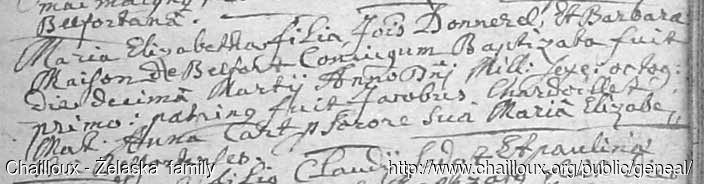 Belfortana.
Maria Elizabetha filia Jois Donnerel, et Barbara
Maison de Belfort Coniugum Baptizata fuit
die decima Martij Anno Dnj Mill: sexc: octog:
primo: patrino fuit Jacobus Chardoillet,
Mat. Anna Cart p sorore sua Maria Elizabe,,
Claudij Et paulina
Chailloux - Zelaska family
http://www.chailloux.org/public/geneal/